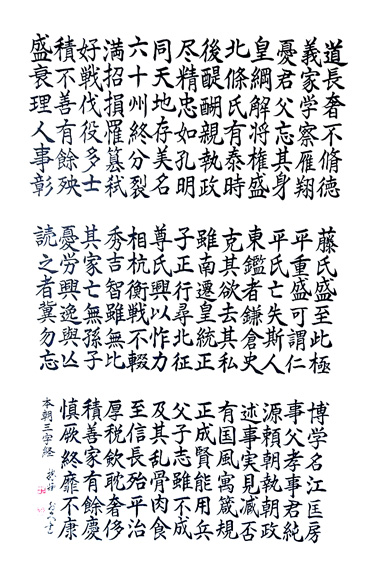 道長奢不脩徳
藤氏盛至此極
博学名江匡房
義家学察雁翔
平重盛可謂仁
事父孝事君純
憂君父忘其身
平氏亡失斯人
源頼朝執朝政
皇綱解将権盛
東鑑者鎌倉史
述事実見減否
北條氏有泰時
克其欲去其私
有国風寓箴規
後醍醐親執政
雖南遷皇統正
正成賢能用兵
尽精忠如孔明
子正行尋北征
父子志雖不成
同天地存美名
尊氏興以作力
及其乱骨肉食
六十州終分裂
相杭衡戦不輟
至信長殆平治
満招損罹簒弑
秀吉智雖無比
厚税飲耽奢侈
好戦伐役多士
其家亡無孫子
積善家有餘慶
積不善有餘殃
憂労興逸與亡
慎厥終靡不康
盛衰理人事彰
読之者冀勿忘
本朝三字経